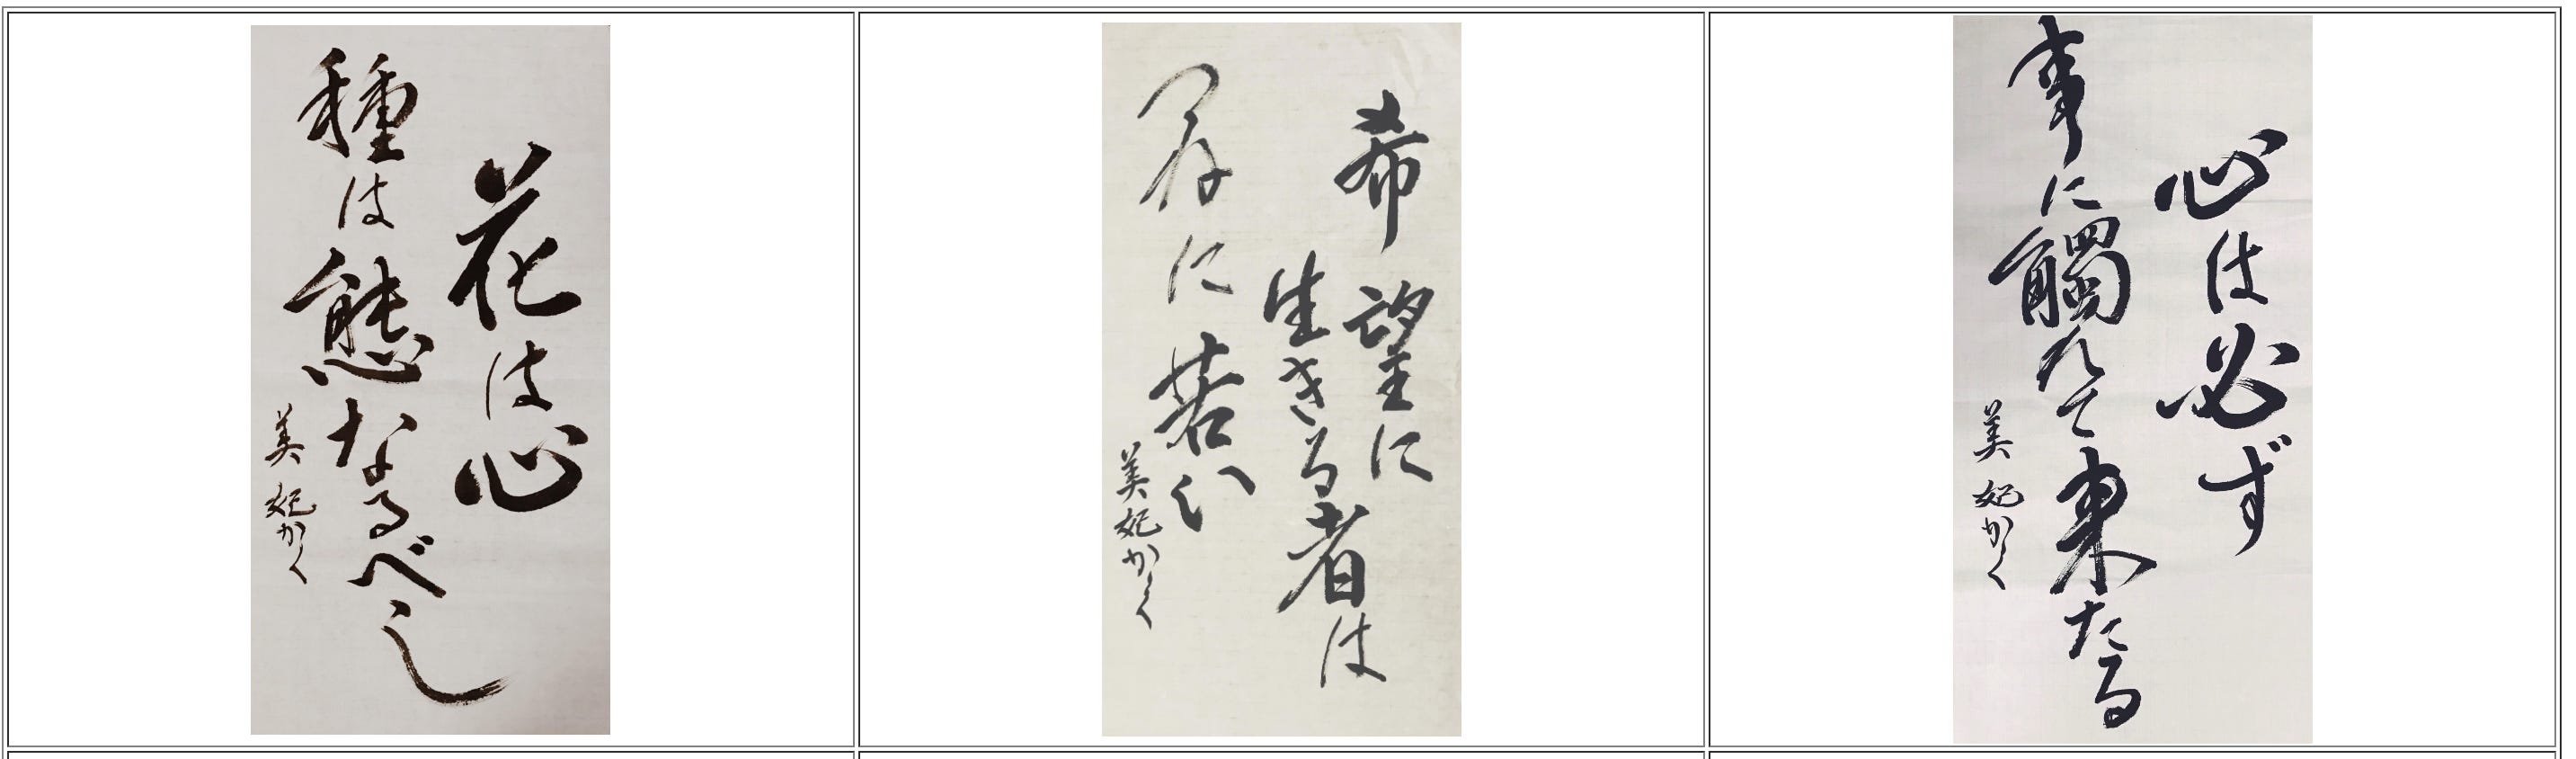 花は心
種は態なるべし
美妃かく
希望に
生きる者は
つねに若い
美妃かく
心は必ず
事に觸れて来たる
美妃かく